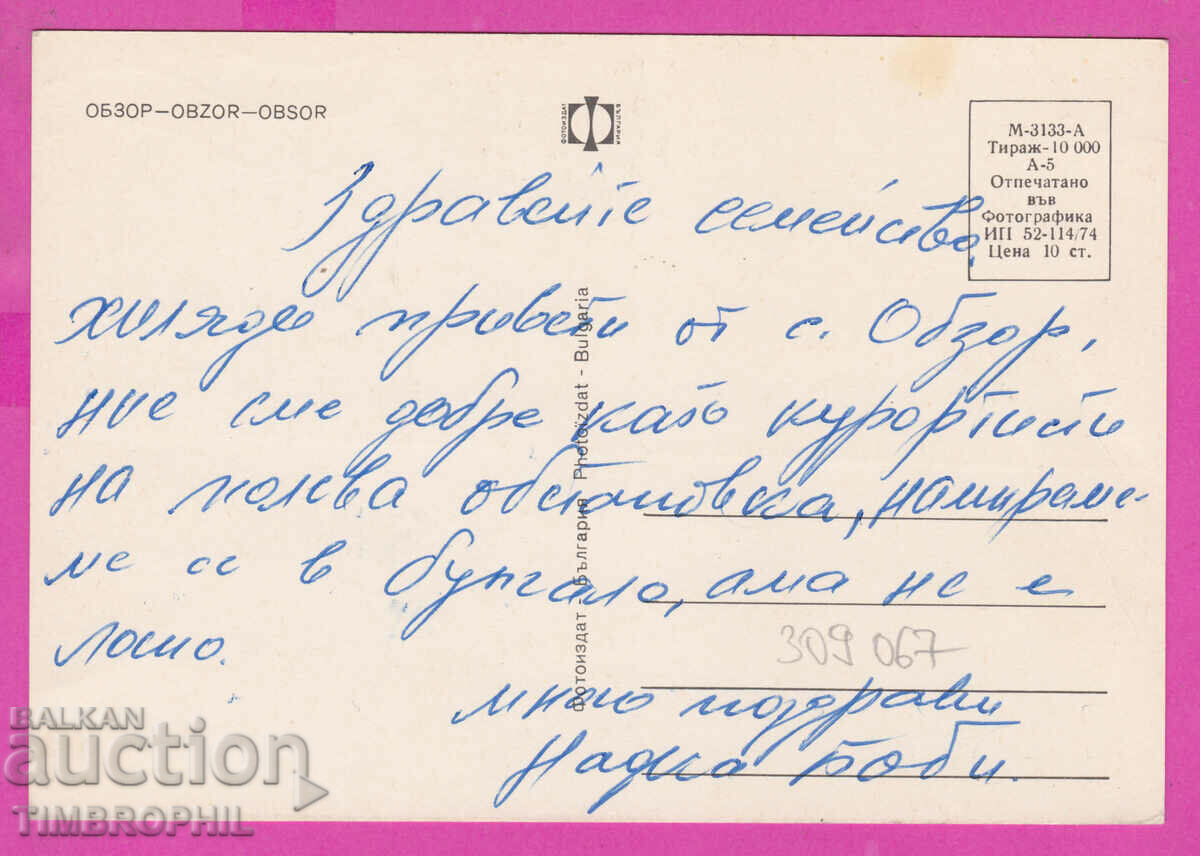 ОБЗОР—OBZOR—OBSOR
ФОТОИЗДАТ
БЪЛГАРИЯ
М-3133-А
Тираж-10 000
А-5
Отпечатано
във
Фотографика
ИП 52-114/74
Цена 10 ст.
Здравейте семейство,
хиляди привети от с. Обзор,
ние сме добре като курортисти
на почва обстановка, намираме-
ме се в бунгало, ама не е
лошо.
много поздрави
Надка Боби.
Фотоиздат България Photoïzdat - Bulgaria
309 067
BALKAN
auction
TIMBROPHIL